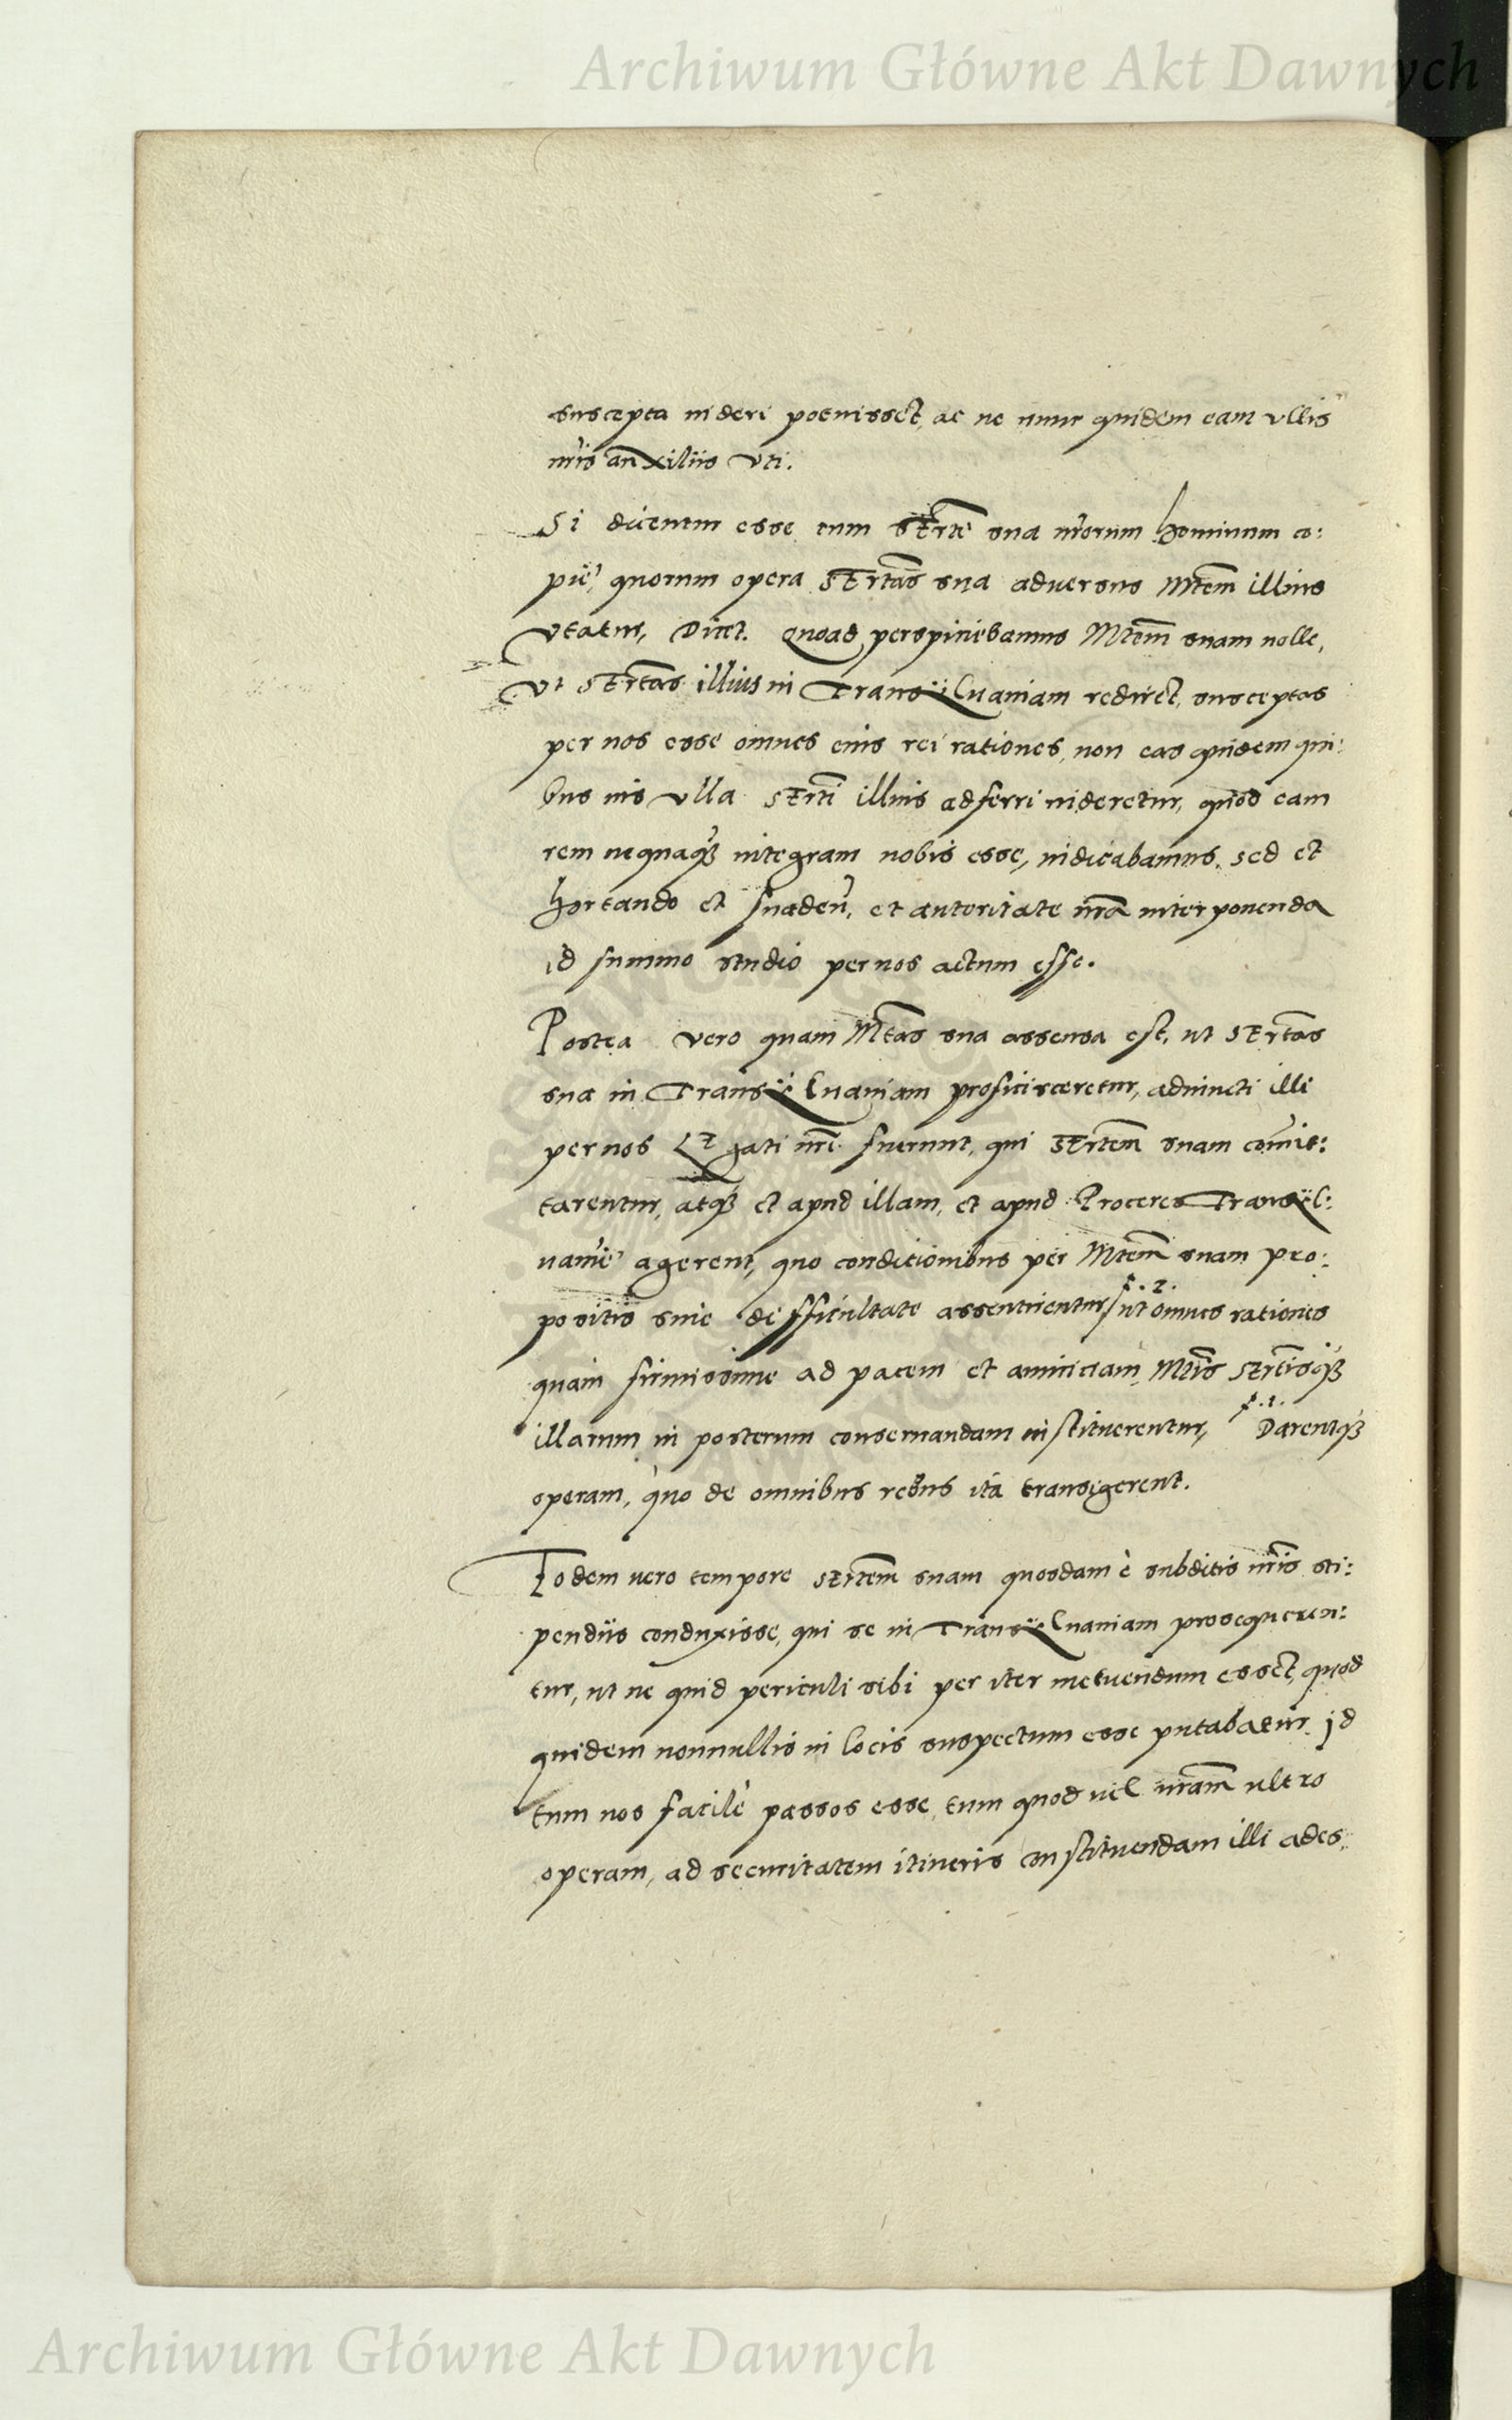 Archiwum Główne Akt Dawnych
suscepta uideri potuisset, ac ne nunc quidem eam vllis
nr̃is auxiliis vti.
Si dicentur esse cum SErte sua nr̃orum hominum co:
pie, quorum opera SErtas sua aduersus Mtem illius
vtatur, Dicet. Quoad perspiciebamus Mtem suam nolle,
Vt SErtas illius in Transsiluaniam rediret, susceptas
per nos esse omnes eius rei rationes, non eas quidem qui:
bus uis vlla SErti illius adferri uideretur, quod eam
rem nequaq̃ integram nobis esse, iudicabamus. sed et
hortando et suaden̄, et autoritate nr̃a interponenda
id summo studio per nos actum esse.
Postea vero quam Mtas sua assensa est, ut SErtas
sua in Transsiluaniam proficisceretur, adiuncti illi
per nos Legati nr̃i fuerunt, qui SErtem suam comi:
tarentur, atq3 et apud illam, et apud Proceres Transsil:
uanie agerent, quo conditionibus per Mtem suam pro:
positis sine difficultate assentirentur, ut omnes rationes
quam firmissime ad pacem et amicitiam, Mtis SErtisq3
illarum in posterum conseruandam instituerentur, Darentq3
operam, quo de omnibus rebus ita transigerent.
Eodem uero tempore SErtem suam quosdam è subditis nr̃is sti:
pendiis conduxisse, qui se in Transsiluaniam prosequeren:
tur, ut ne quid periculi sibi per iter metuendum esset, quod
quidem nonnullis in locis suspectum esse putabatur. id
tum nos facilè passos esse, tum quod uel nr̃am ultro
operam, ad securitatem itineris constituendam illi ades:
Archiwum Główne Akt Dawnych